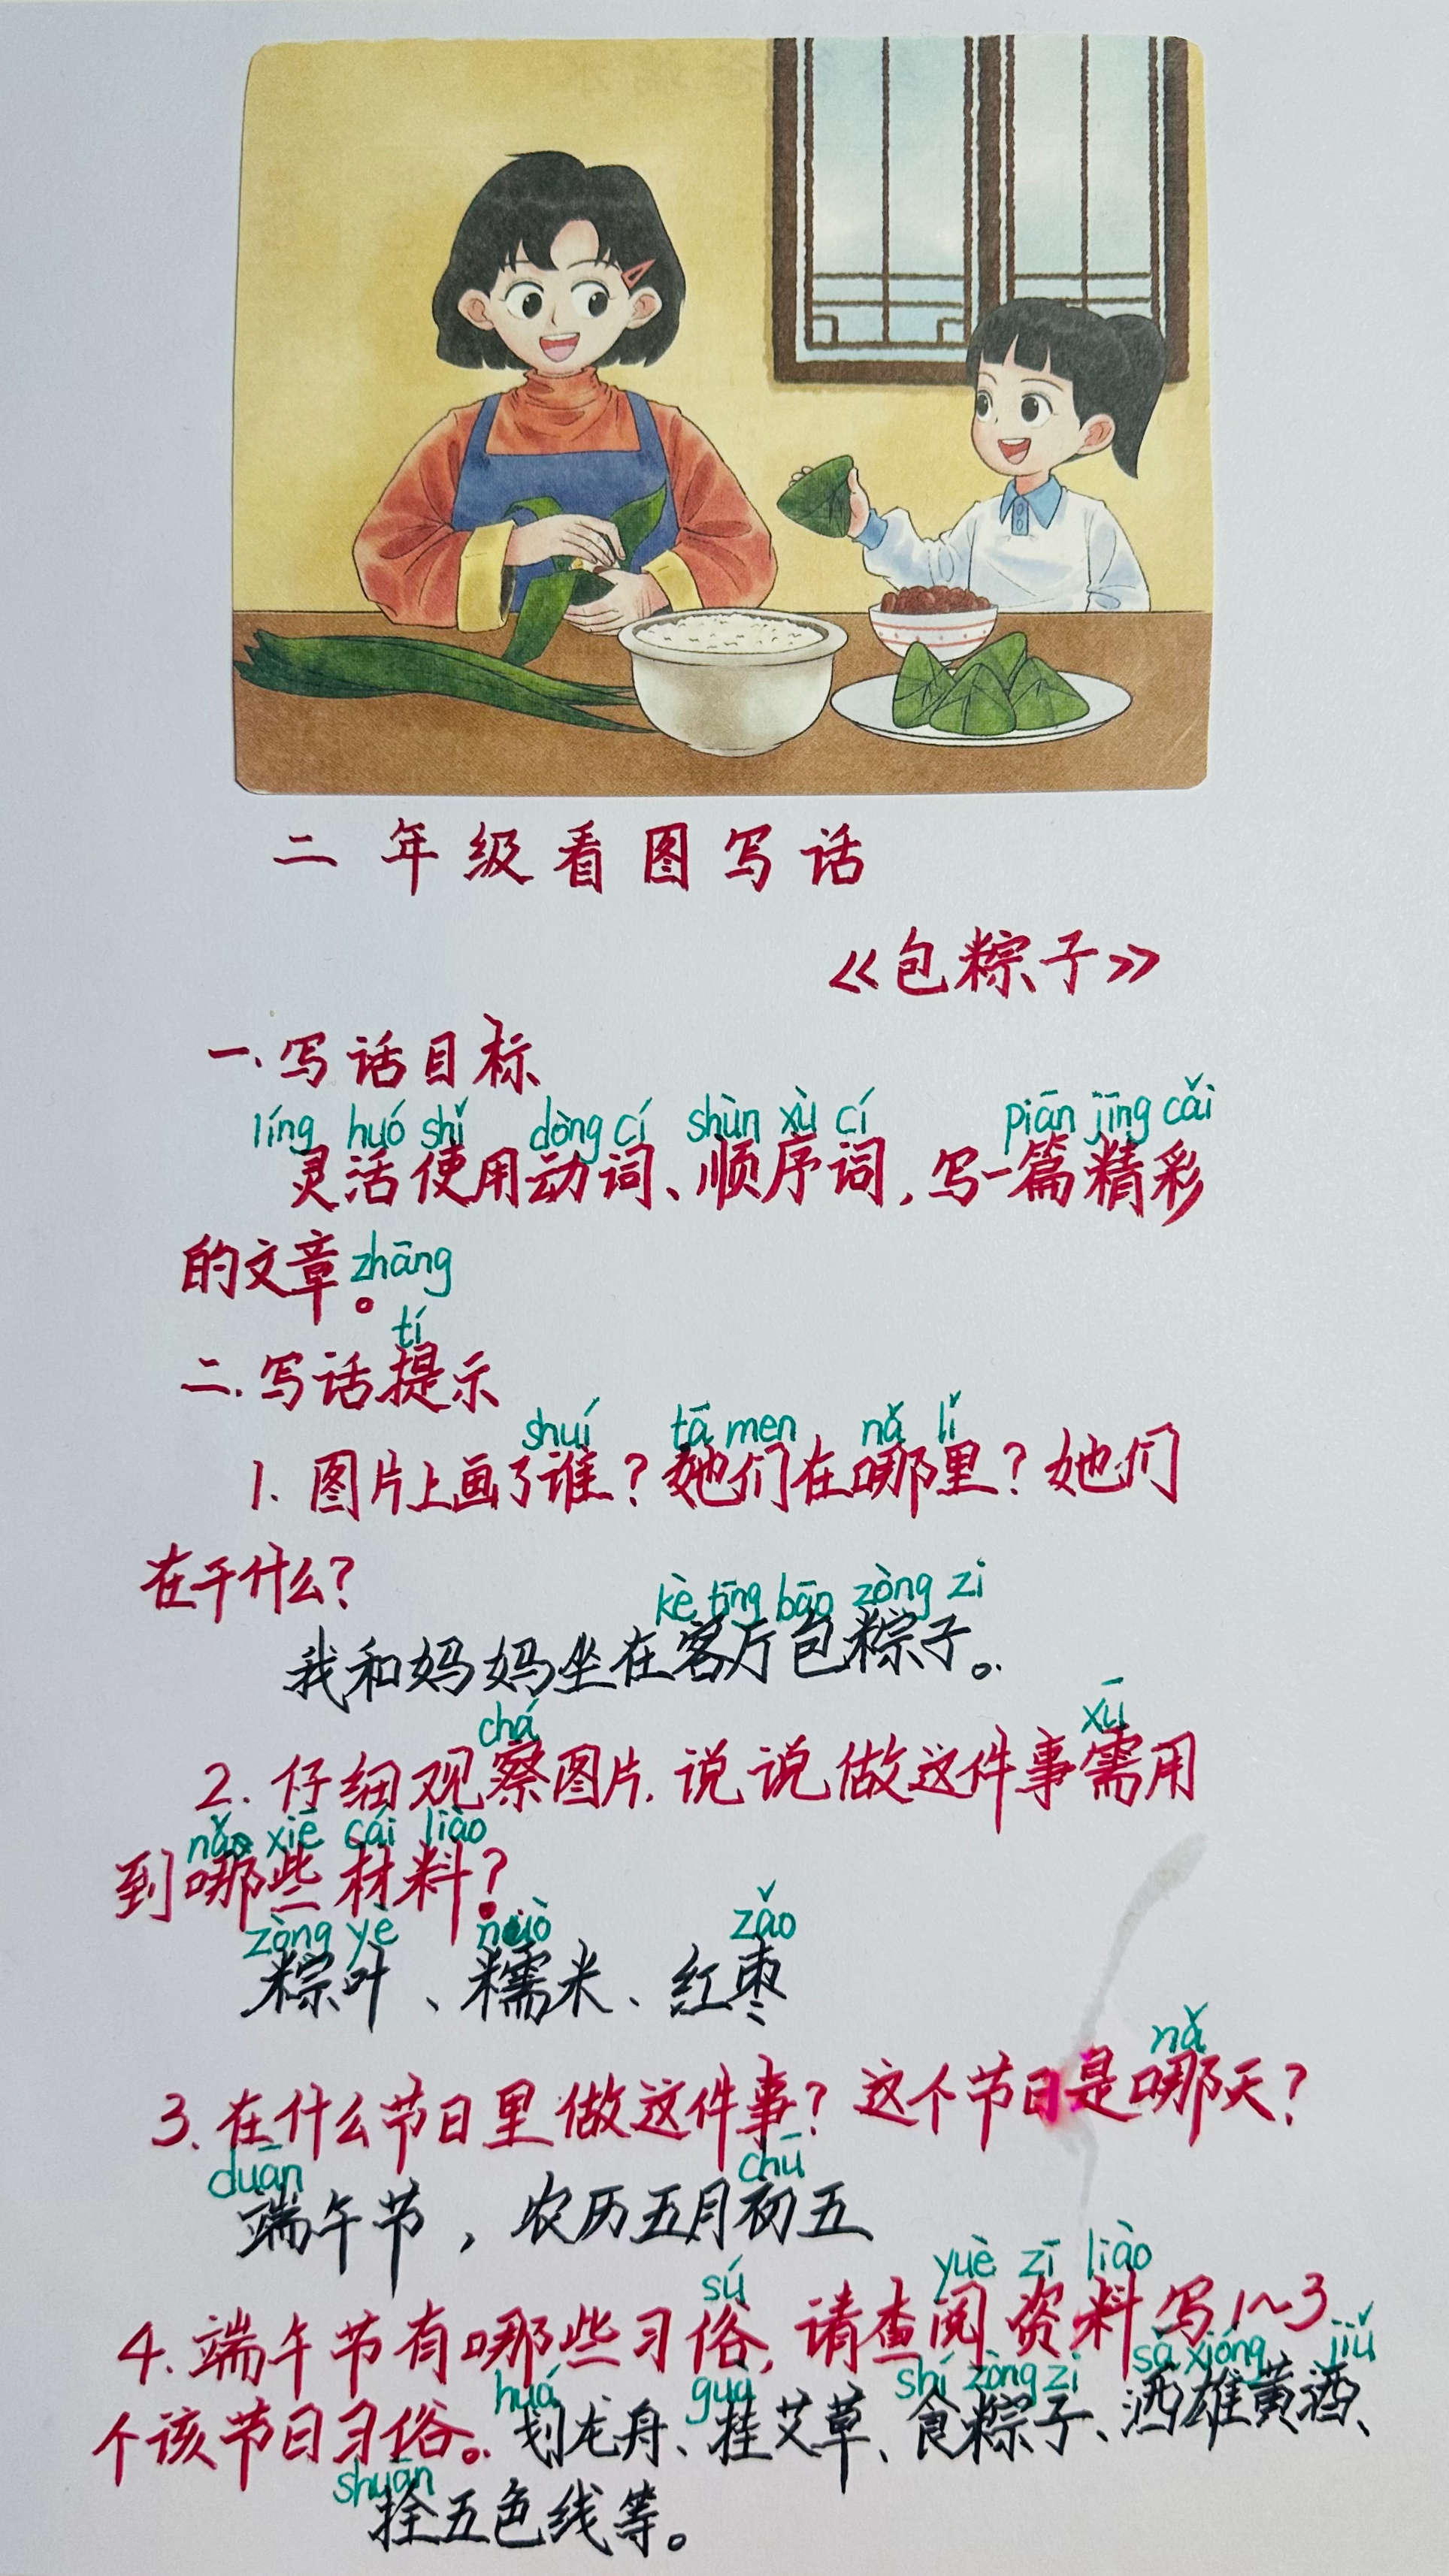 二年级看图写话
《包粽子》
一.写话目标
líng huó shǐ dòng cí shùn xù cí piān jīng cǎi
灵活使用动词、顺序词,写一篇精彩
的文章。zhāng
tí
二.写话提示
shuí tā men nǎ lǐ
1. 图片上画了谁?她们在哪里?她们
在干什么?
kè tīng bāo zòng zi
我和妈妈坐在客厅包粽子。
chá xū
2. 仔细观察图片.说说做这件事需用
nǎ xiē cái liào
到哪些材料?
zòng yè nuò zǎo
粽叶、糯米、红枣
nǎ
3. 在什么节日里做这件事?这个节日是哪天?
duān chū
端午节,农历五月初五
sú yuè zī liào
4. 端午节有哪些习俗,请查阅资料写1~3
huá guà shí zòng zi sǎ xióng jiǔ
个该节日习俗。划龙舟、挂艾草、食粽子、洒雄黄酒、
shuān
拴五色线等。